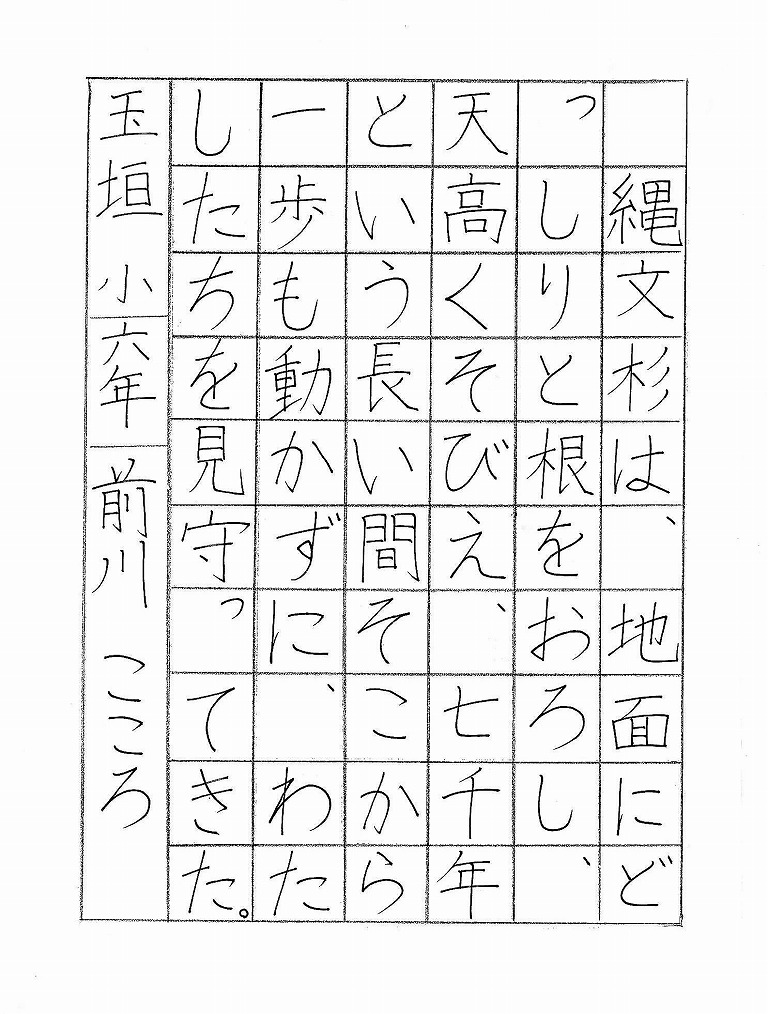 縄文杉は、地面にど
っしりと根をおろし、
天高くそびえ、七千年
という長い間そこから
一歩も動かずに、わた
したちを見守ってきた。
玉垣小 六年 前川 こころ